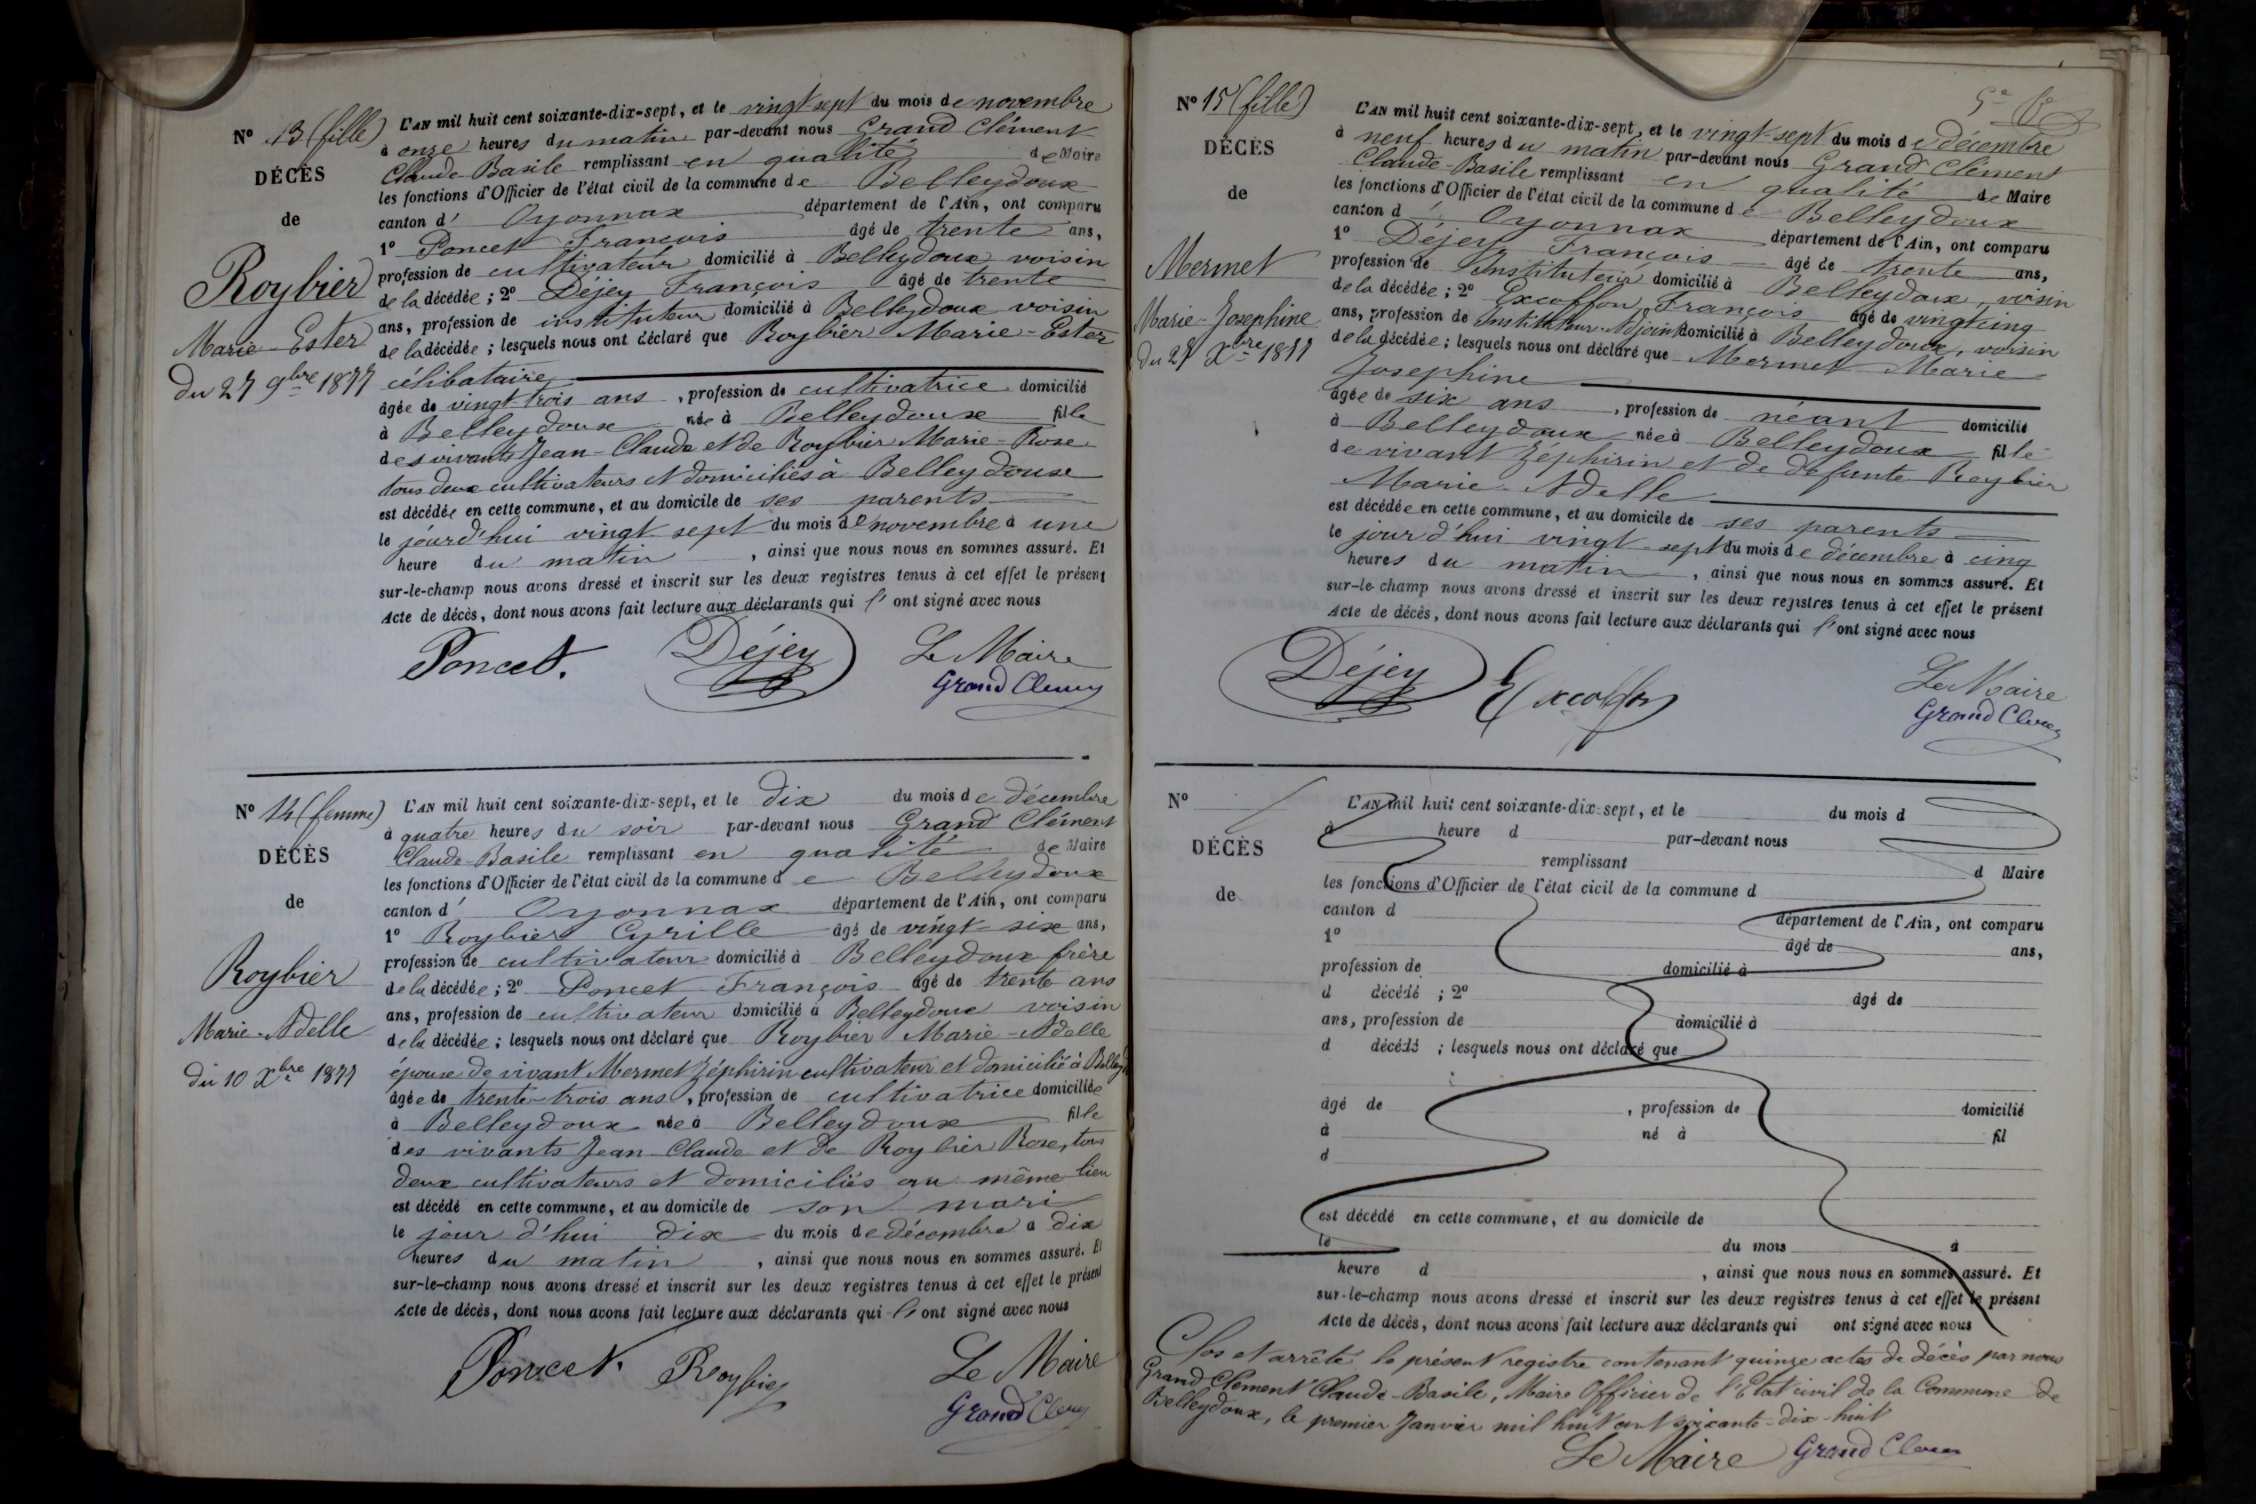 N° 13 (fille)
DÉCÈS
de
Roybier
Marie-Ester
du 27 9bre 1877
L'AN mil huit cent soixante-dix-sept, et le vingt sept du mois de novembre
à onze heures du matin par-devant nous Grand Clément
Claude-Basile remplissant en qualité de Maire
les fonctions d'Officier de l'état civil de la commune de Belleydoux
canton d' Oyonnax département de l'Ain, ont comparu
1° Poncet François âgé de trente ans,
profession de cultivateur domicilié à Belleydoux voisin
de la décédée ; 2° Déjey François âgé de trente
ans, profession de instituteur domicilié à Belleydoux voisin
de la décédée ; lesquels nous ont déclaré que Roybier Marie-Ester
célibataire
âgée de vingt trois ans , profession de cultivatrice domicilié
à Belleydoux née à Belleydoux fille
des vivants Jean-Claude et de Roybier Marie-Rose
tous deux cultivateurs et domiciliés à Belleydoux
est décédée en cette commune, et au domicile de ses parents
le jourd'hui vingt sept du mois de novembre à une
heure du matin , ainsi que nous nous en sommes assuré. Et
sur-le-champ nous avons dressé et inscrit sur les deux registres tenus à cet effet le présent
Acte de décès, dont nous avons fait lecture aux déclarants qui l'ont signé avec nous
Poncet. Déjey Le Maire
Grand Clément
N° 14 (femme)
DÉCÈS
de
Roybier
Marie-Adelle
du 10 Xbre 1877
L'AN mil huit cent soixante-dix-sept, et le dix du mois de décembre
à quatre heures du soir par-devant nous Grand Clément
Claude-Basile remplissant en qualité de Maire
les fonctions d'Officier de l'état civil de la commune de Belleydoux
canton d' Oyonnax département de l'Ain, ont comparu
1° Roybier Cyrille âgé de vingt-six ans,
profession de cultivateur domicilié à Belleydoux frère
de la décédée ; 2° Poncet François âgé de trente ans
ans, profession de cultivateur domicilié à Belleydoux voisin
de la décédée ; lesquels nous ont déclaré que Roybier Marie-Adelle
épouse de vivant Mermet Zéphirin cultivateur et domicilié à Belleyd
âgée de trente-trois ans , profession de cultivatrice domiciliée
à Belleydoux née à Belleydoux fille
des vivants Jean-Claude et de Roybier Rose, tous
deux cultivateurs et domiciliés au même lieu
est décédé en cette commune, et au domicile de son mari
le jour d'hui dix du mois de décembre à dix
heures du matin , ainsi que nous nous en sommes assuré. Et
sur-le-champ nous avons dressé et inscrit sur les deux registres tenus à cet effet le présent
Acte de décès, dont nous avons fait lecture aux déclarants qui l'ont signé avec nous
Poncet. Roybier Le Maire
Grand Clément
N° 15 (fille)
DÉCÈS
de
Mermet
Marie-Josephine
du 27 Xbre 1877
L'AN mil huit cent soixante-dix-sept, et le vingt-sept du mois de décembre
à neuf heures du matin par-devant nous Grand Clément
Claude-Basile remplissant en qualité de Maire
les fonctions d'Officier de l'état civil de la commune de Belleydoux
canton d' Oyonnax département de l'Ain, ont comparu
1° Déjey François âgé de trente ans,
profession de Instituteur domicilié à Belleydoux, voisin
de la décédée ; 2° Excoffon François âgé de vingt cinq
ans, profession de Instituteur-Adjoint domicilié à Belleydoux, voisin
de la décédée ; lesquels nous ont déclaré que Mermet Marie
Josephine
âgée de six ans , profession de néant domicilié
à Belleydoux née à Belleydoux fille
de vivant Zéphirin et de defunte Roybier
Marie-Adelle
est décédée en cette commune, et au domicile de ses parents
le jour d'hui vingt-sept du mois de décembre à cinq
heures du matin , ainsi que nous nous en sommes assuré. Et
sur-le-champ nous avons dressé et inscrit sur les deux registres tenus à cet effet le présent
Acte de décès, dont nous avons fait lecture aux déclarants qui l'ont signé avec nous
Déjey Excoffon Le Maire
Grand Clément
N°
DÉCÈS
de
L'AN mil huit cent soixante-dix-sept, et le du mois d
à heure d par-devant nous
remplissant d Maire
les fonctions d'Officier de l'état civil de la commune d
canton d département de l'Ain, ont comparu
1° âgé de ans,
profession de domicilié à
d décédé ; 2° âgé de
ans, profession de domicilié à
d décédé ; lesquels nous ont déclaré que
âgé de , profession de domicilié
à né à fil
d
est décédé en cette commune, et au domicile de
le du mois à
heure d , ainsi que nous nous en sommes assuré. Et
sur-le-champ nous avons dressé et inscrit sur les deux registres tenus à cet effet le présent
Acte de décès, dont nous avons fait lecture aux déclarants qui ont signé avec nous
Clos et arrêté le présent registre contenant quinze actes de décès par nous
Grand Clément Claude-Basile, Maire Officier de l'Etat civil de la Commune de
Belleydoux, le premier Janvier mil huit cent soixante-dix-huit
Le Maire Grand Clément